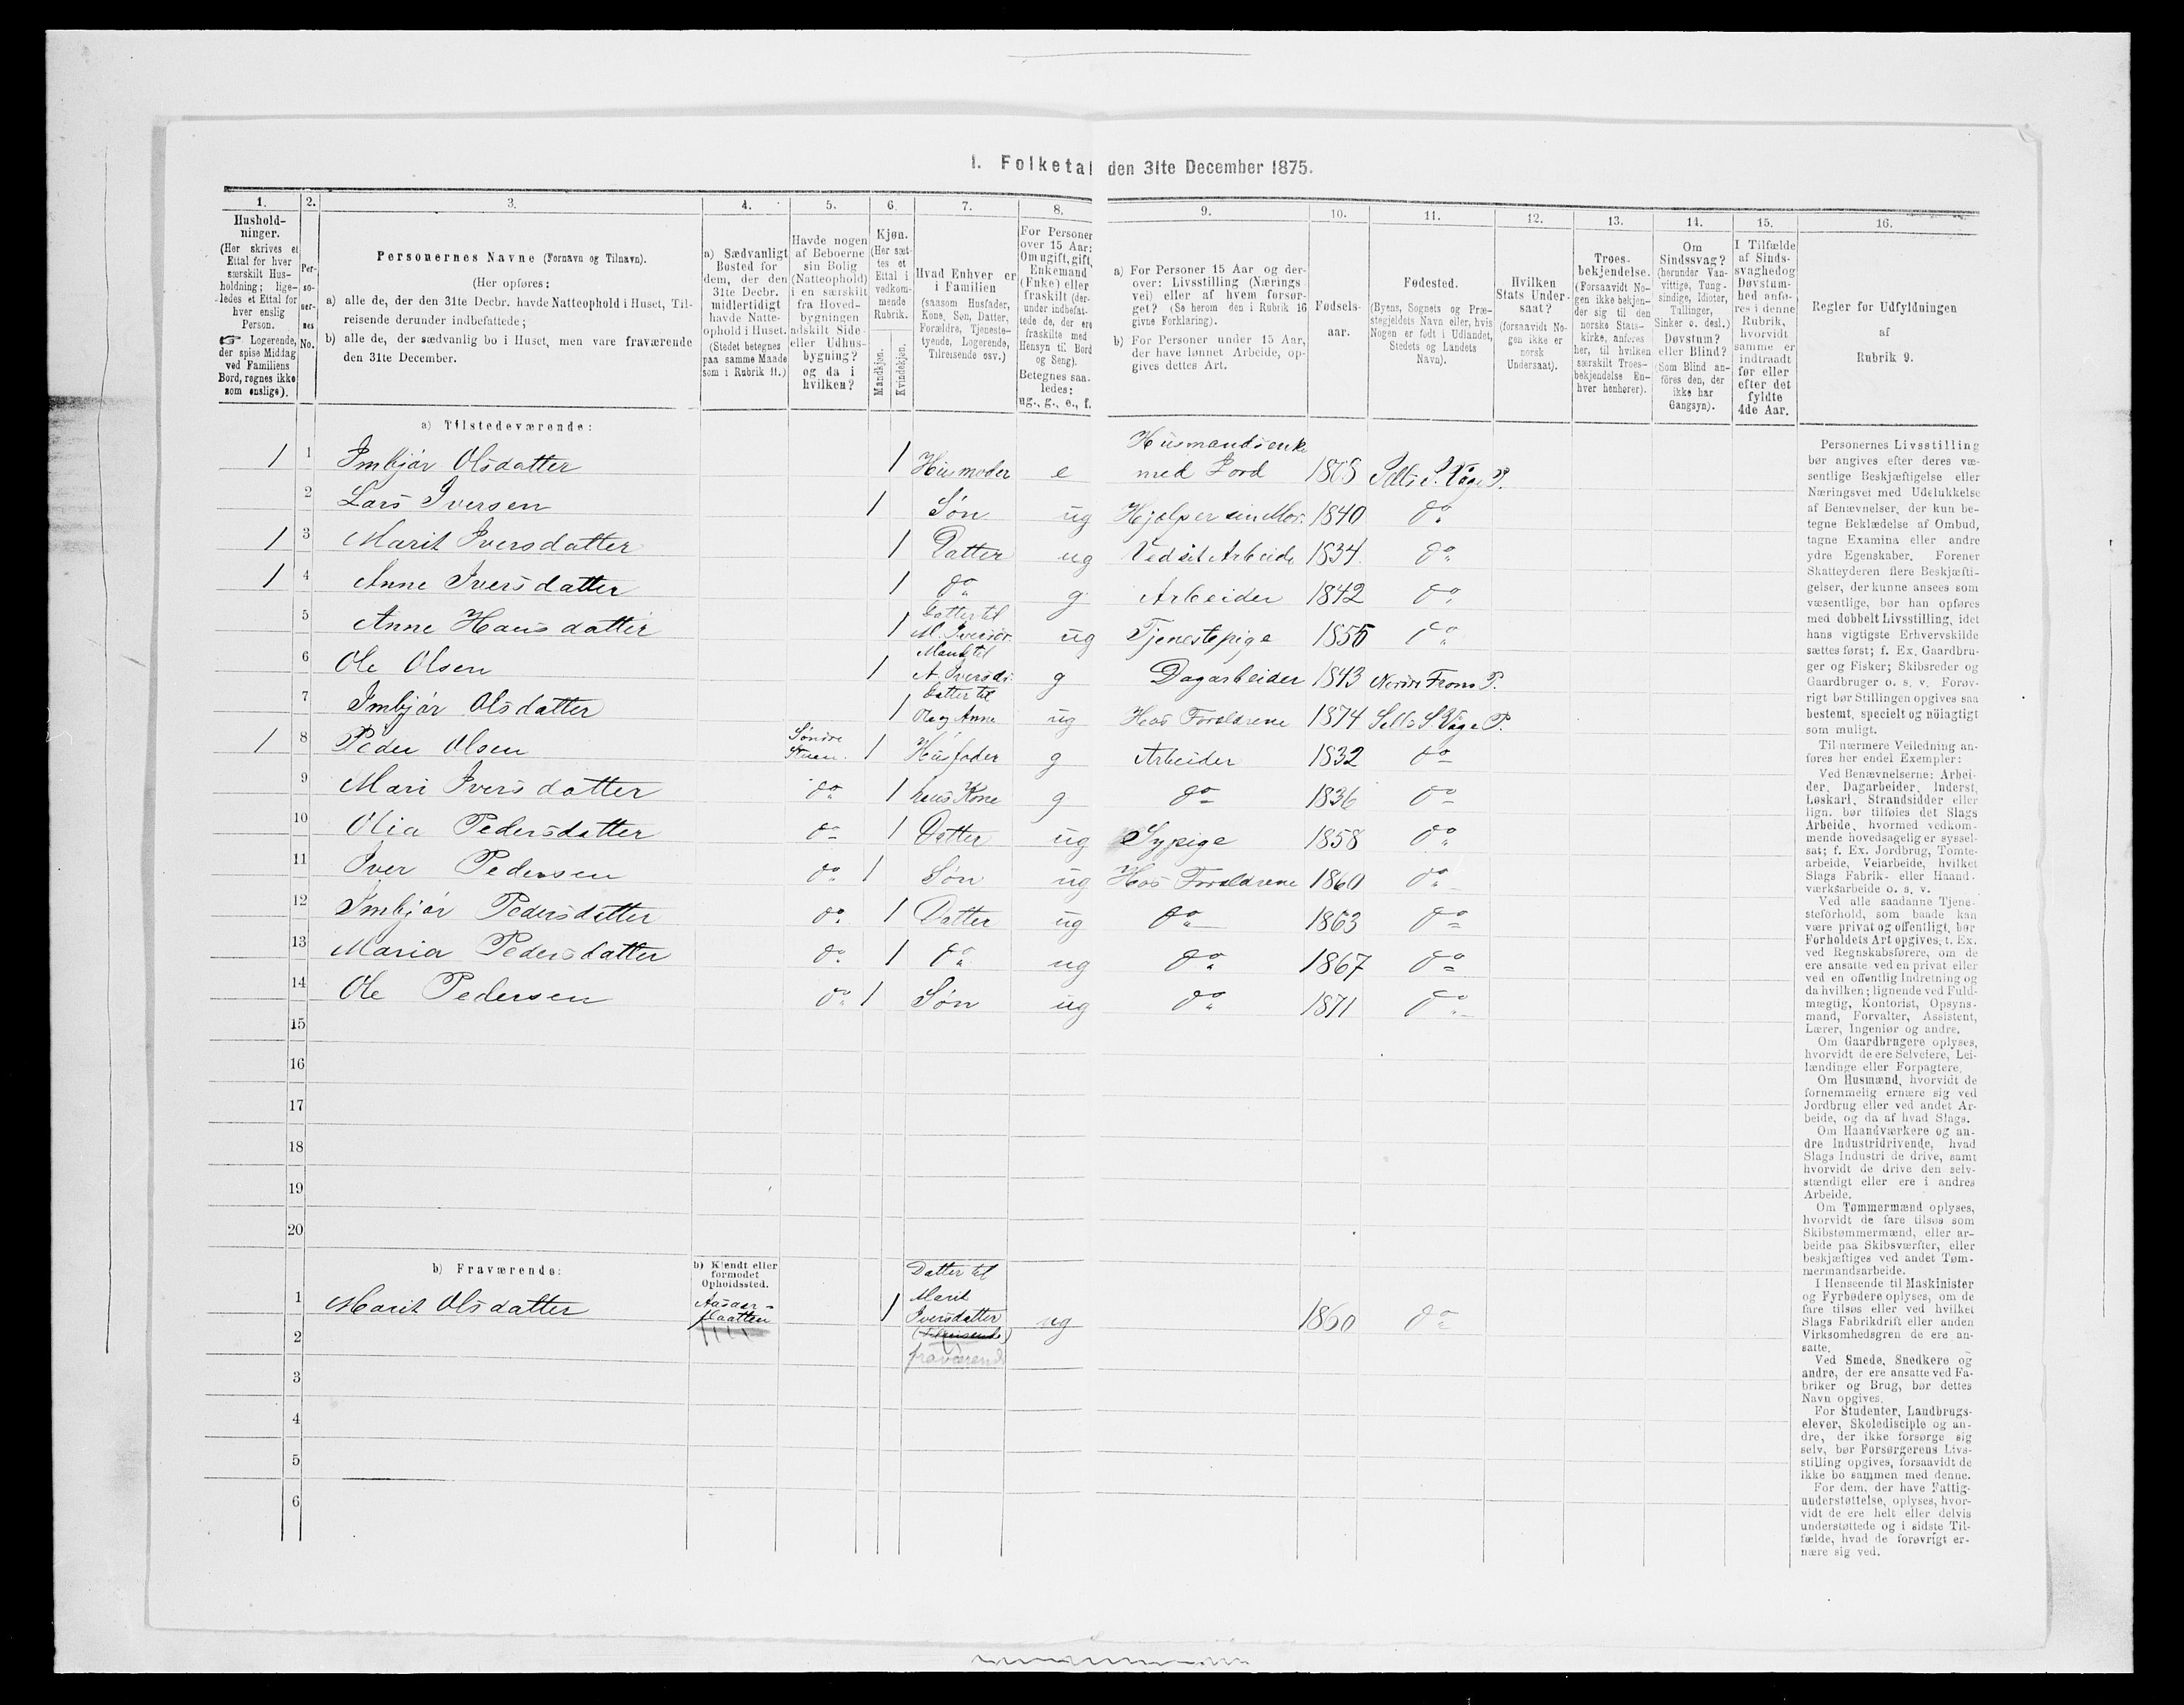 1. Folketal den 31te December 1875.
1. 2. 3. 4. 5. 6. 7. 8. 9. 10. 11. 12. 13. 14. 15. 16.
Hushold-
ninger.
(Her skrives et
Ettal for hver
særskilt Hus-
holdning; lige-
ledes et Ettal for
hver enslig
Person.
☞ Logerende,
der spise Middag
ved Familiens
Bord, regnes ikke
som enslige).
Per-
so-
ner-
nes
No.
Personernes Navne (Fornavn og Tilnavn).
(Her opføres:
a) alle de, der den 31te Decbr. havde Natteophold i Huset, Til-
reisende derunder indbefattede;
b) alle de, der sædvanlig bo i Huset, men vare fraværende
den 31te December.
a) Sædvanligt
Bosted for
dem, der den
31te Decbr.
midlertidigt
havde Natte-
ophold i Huset.
(Stedet betegnes
paa samme Maade
som i Rubrik 11.)
Havde nogen
af Beboerne
sin Bolig
(Natteophold)
i en særskilt
fra Hoved-
bygningen
adskilt Side-
eller Udhus-
bygning?
og da i
hvilken?
Kjøn.
(Her sæt-
tes et
Ettal i
vedkom-
mende
Rubrik.
Mandkjøn.
Kvindekjøn.
Hvad Enhver er
i Familien
(saasom Husfader,
Kone, Søn, Datter,
Forældre, Tjeneste-
tyende, Logerende,
Tilreisende osv.)
For Personer
over 15 Aar:
Om ugift, gift,
Enkemand
(Enke) eller
fraskilt (der-
under indbefat-
tede de, der ere
fraskilte med
Hensyn til Bord
og Seng).
Betegnes saa-
ledes:
ug., g., e., f.
a) For Personer 15 Aar og der-
over: Livsstilling (Nærings
vei) eller af hvem forsør-
get? (Se herom den i Rubrik 16
givne Forklaring).
b) For Personer under 15 Aar,
der have lønnet Arbeide, op-
gives dettes Art.
Fødsels-
aar.
Fødested.
(Byens, Sognets og Præ-
stegjeldets Navn eller, hvis
Nogen er født i Udlandet,
Stedets og Landets
Navn).
Hvilken
Stats Under-
saat?
(forsaavidt No-
gen ikke er
norsk
Undersaat).
Troes-
bekjendelse.
(Forsaavidt No-
gen ikke bekjen-
der sig til den
norske Stats-
kirke, anføres
her, til hvilken
særskilt Troes-
bekjendelse En-
hver henhører).
Om
Sindssvag?
(herunder Van-
vittige, Tung-
sindige, Idioter,
Tullinger,
Sinker o. desl.)
Døvstum?
eller Blind?
(Som Blind an-
føres den, der
ikke har
Gangsyn).
I Tilfælde
af Sinds-
svaghed og
Døvstum-
hed anfø-
res i denne
Rubrik,
hvorvidt
samme er
indtraadt
før eller
efter det
fyldte
4de Aar.
Regler for Udfyldningen
af
Rubrik 9.
a) Tilstedeværende:
Husmandsenke
1 1 Imbjór Olsdatter 1 Husmoder e med Jord 1808 Sells S. Vage P.
2 Lars Iversen 1 Søn ug Hjælper sin Mor. 1840 do
1 3 Marit Iversdatter 1 Datter ug Ved sit Arbeide 1834 do
1 4 Anne Iversdatter 1 do g Arbeider 1842 do
Datter til
5 Anne Hansdatter 1 M. Iversdr. ug Tjenestepige 1855 do
Mand til
6 Ole Olsen 1 A. Iversdr. g Dagarbeider 1843 Nordre Frons P.
Datter til
7 Imbjór Olsdatter 1 Ole og Anne ug Hos Forældrene 1874 Sells S. Vage P.
Søndre
1 8 Peder Olsen Stuen. 1 Husfader g Arbeider 1832 do
9 Mari Iversdatter do 1 hans Kone g do 1836 do
10 Olia Pedersdatter do 1 Datter ug Sypige 1858 do
11 Iver Pedersen do 1 Søn ug Hos Forældrene 1860 do
12 Imbjór Pedersdatter do 1 Datter ug do 1863 do
13 Maria Pedersdatter do 1 do ug do 1867 do
14 Ole Pedersen do 1 Søn ug do 1871 do
15
16
17
18
19
20
b) Fraværende:
b) Kjendt eller
formodet
Opholdssted.
Datter til
Marit
1 Marit Olsdatter Aasaar-
plaatten 1 Iversdatter ug 1860 do
fraværende
2
3
4
5
6
Personernes Livsstilling
bør angives efter deres væ-
sentlige Beskjæftigelse eller
Næringsvei med Udelukkelse
af Benævnelser, der kun be-
tegne Beklædelse af Ombud,
tagne Examina eller andre
ydre Egenskaber. Forener
Skatteyderen flere Beskjæfti-
gelser, der kunne ansees som
væsentlige, bør han opføres
med dobbelt Livsstilling, idet
hans vigtigste Erhvervskilde
sættes først; f. Ex. Gaardbru-
ger og Fisker; Skibsreder og
Gaardbruger o. s. v. Forøv-
rigt bør Stillingen opgives saa
bestemt, specielt og nöiagtigt
som muligt.
Til nærmere Veiledning an-
føres her endel Exempler:
Ved Benævnelserne: Arbei-
der, Dagarbeider, Inderst,
Løskarl, Strandsidder eller
lign. bør tilføies det Slags
Arbeide, hvormed vedkom-
mende hovedsagelig er syssel-
sat; f. Ex. Jordbrug, Tomte-
arbeide, Veiarbeide, hvilket
Slags Fabrik- eller Haand-
værksarbeide o. s. v.
Ved alle saadanne Tjene-
steforhold, som baade kan
være privat og offentligt, bør
Forholdets Art opgives, t. Ex.
ved Regnskabsførere, om de
ere ansatte ved en privat eller
ved en offentlig Indretning og
da hvilken; lignende ved Fuld-
mægtig, Kontorist, Opsyns-
mand, Forvalter, Assistent,
Lærer, Ingeniør og andre.
Om Gaardbrugere oplyses,
hvorvidt de ere Selveiere, Lei-
lændinge eller Forpagtere.
Om Husmænd, hvorvidt de
fornemmelig ernære sig ved
Jordbrug eller ved andet Ar-
beide, og da af hvad Slags.
Om Haandværkere og an-
dre Industridrivende, hvad
Slags Industri de drive, samt
hvorvidt de drive den selv-
stændigt eller ere i andres
Arbeide.
Om Tømmermænd oplyses,
hvorvidt de fare tilsøs som
Skibstømmermænd, eller ar-
beide paa Skibsværfter, eller
beskjæftiges ved andet Tøm-
mermandsarbeide.
I Henseende til Maskinister
og Fyrbødere oplyses, om de
fare tilsøs eller ved hvilket
Slags Fabrikdrift eller anden
Virksomhedsgren de ere an-
satte.
Ved Smede, Snedkere og
andre, der ere ansatte ved Fa-
briker og Brug, bør dettes
Navn opgives.
For Studenter, Landbrugs-
elever, Skoledisciple og an-
dre, der ikke forsørge sig
selv, bør Forsørgerens Livs-
stilling opgives, forsaavidt de
ikke bo sammen med denne.
For dem, der have Fattig-
understøttelse, oplyses, hvor-
vidt de ere helt eller delvis
understøttede og i sidste Til-
fælde, hvad de forøvrigt er-
nære sig ved.